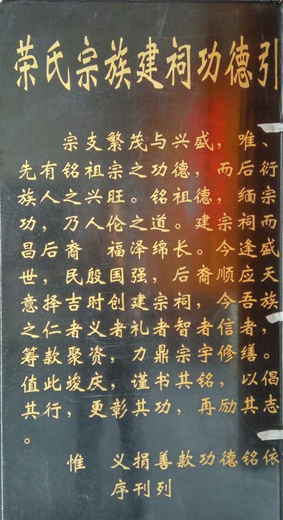 荣氏宗族建祠功德引
宗支繁茂与兴盛，唯、
先有铭祖宗之功德，而后衍
族人之兴旺。铭祖德，缅宗
功，乃人伦之道。建宗祠而
昌后裔 福泽绵长。今逢盛
世，民殷国强，后裔顺应天
意择吉时创建宗祠，今吾族
之仁者义者礼者智者信者，
筹款聚资，力鼎宗宇修缮。
值此竣庆，谨书其铭，以倡
其行，更彰其功，再励其志
。
惟 义捐善款功德铭依
序刊列